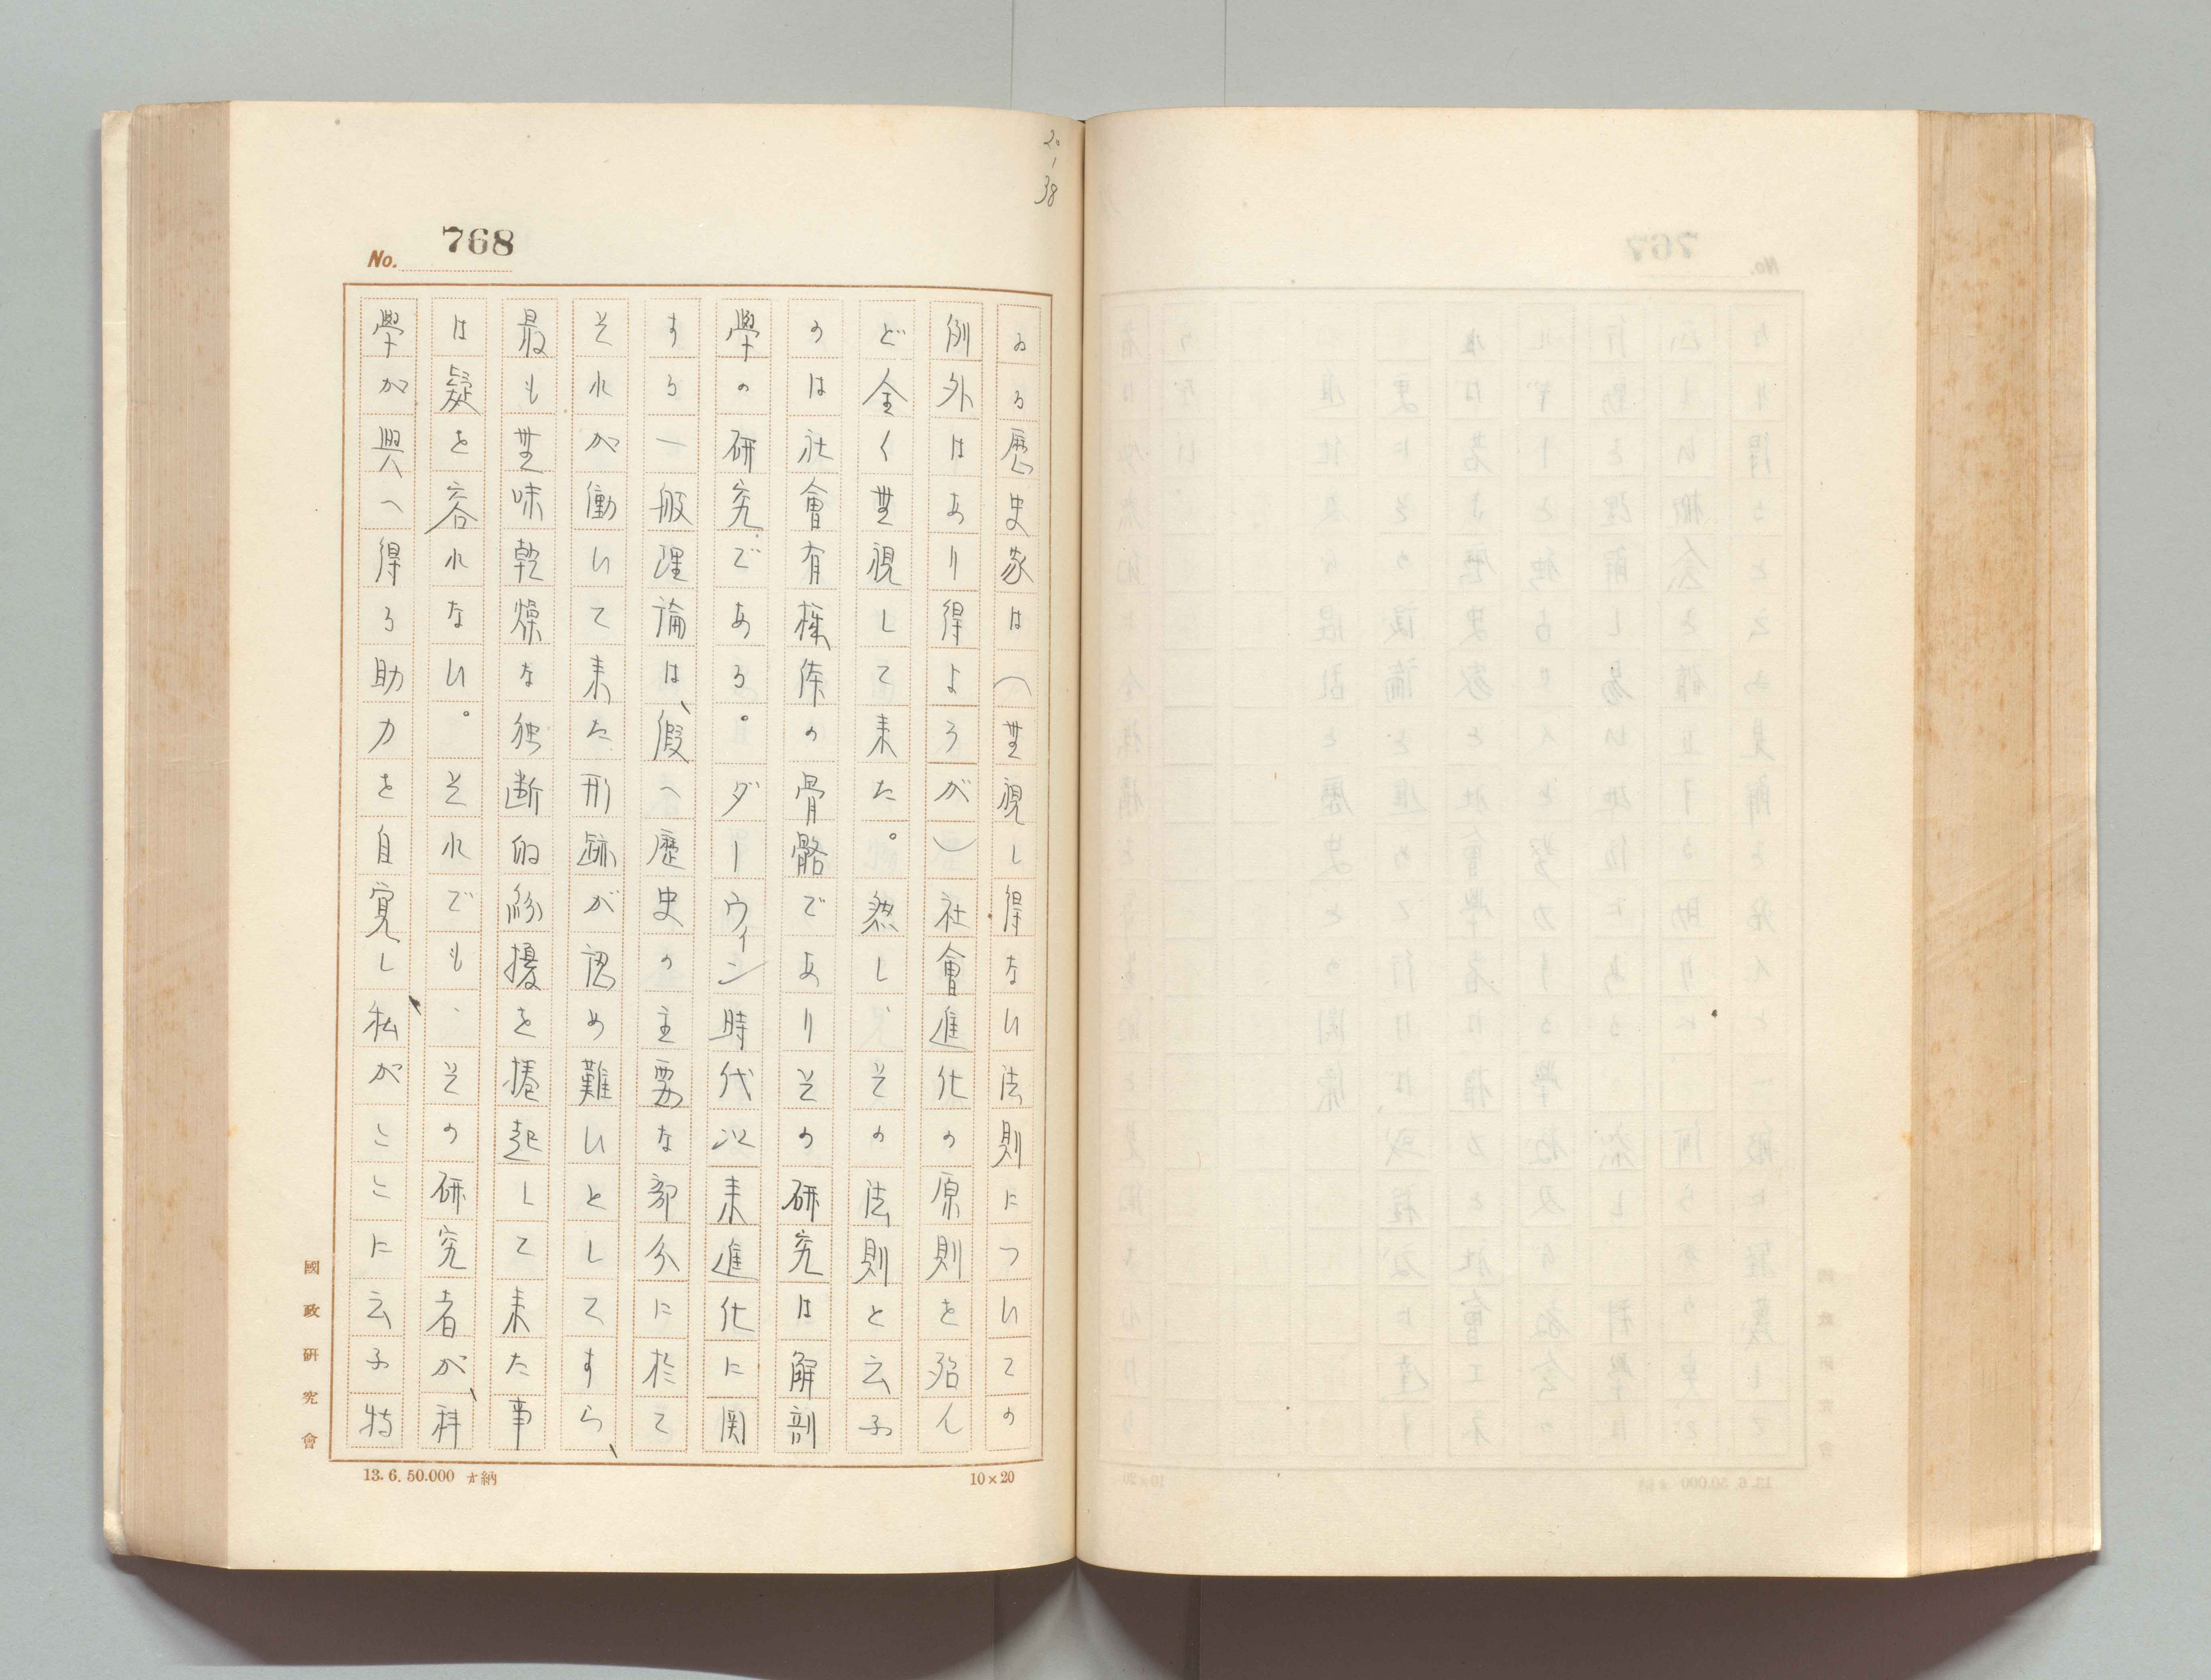 20/38
No. 768
ゐる歴史家は（無視し得ない法則についての
例外はあり得よろが）社會進化の原則を殆ん
ど全く無視して来た。然し、その法則と云ふ
のは社會有機体の骨骼でありその研究は解剖
學の研究である。ダーウィン時代以来進化に関
する一般理論は、假へ歴史の主要な部分に於て
それが働いて来た形跡が認め難いとしてすら、
最も無味乾燥な独断的紛擾を捲起して来た事
は疑を容れない。それでも、その研究者が、科
學が與へ得る助力を自覚し、私がこゝに云ふ特
國政研究會
13. 6. 50.000 納
10×20